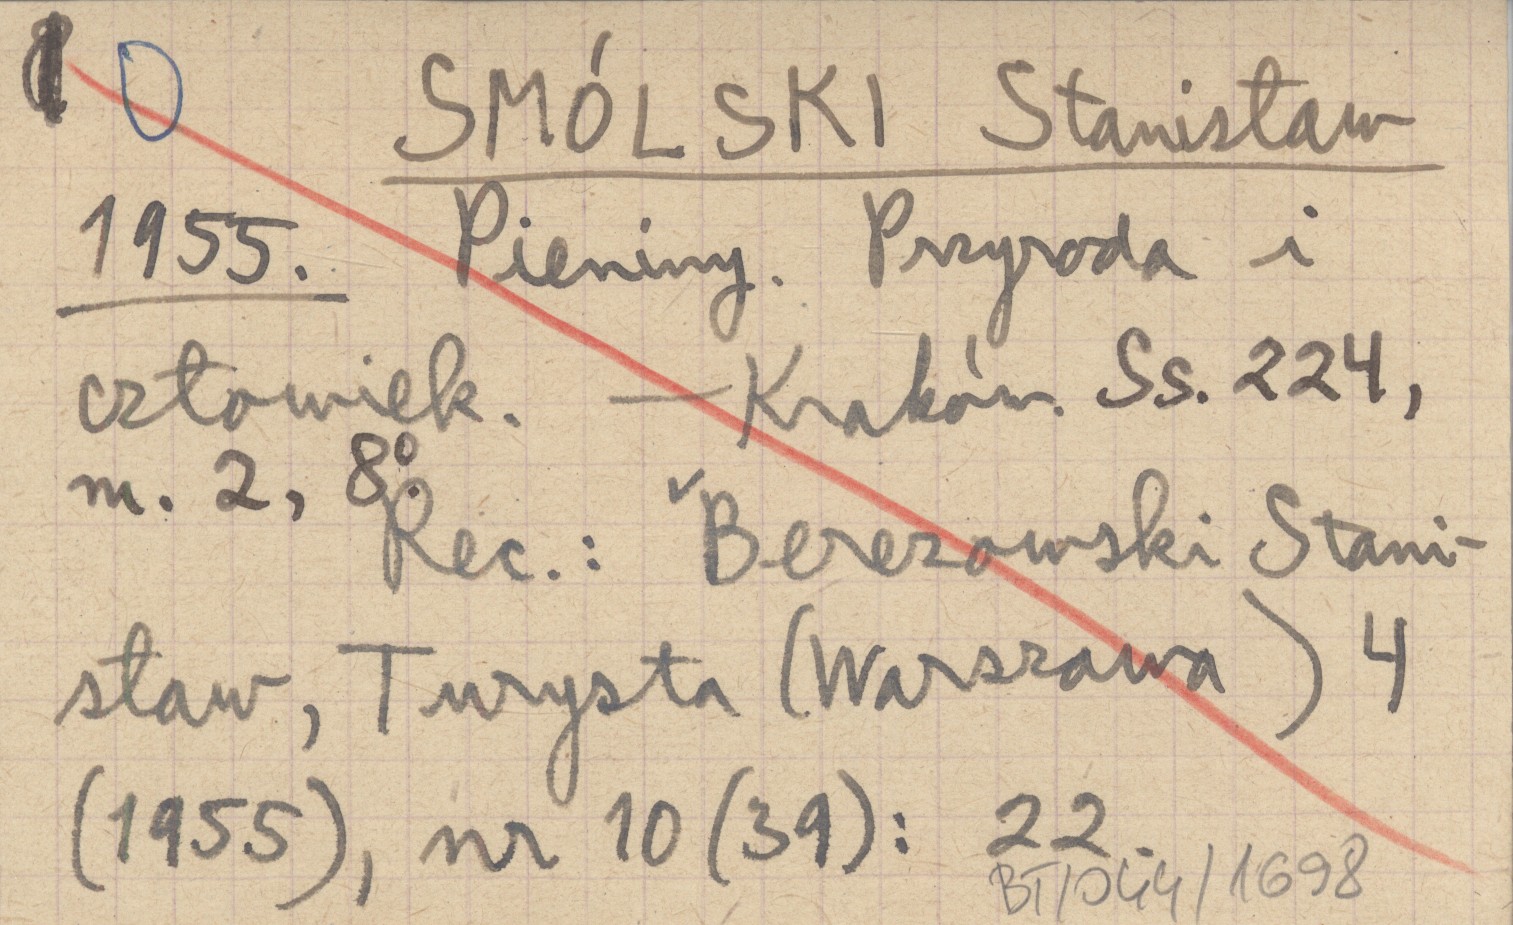 0 SMÓLSKI Stanisław
1955. Pieniny. Przyroda i
człowiek. — Kraków. Ss. 224,
m. 2, 8°.
Rec.: Berezowski Stani-
sław, Turysta (Warszawa) 4
(1955), nr 10 (39): 22.
1698